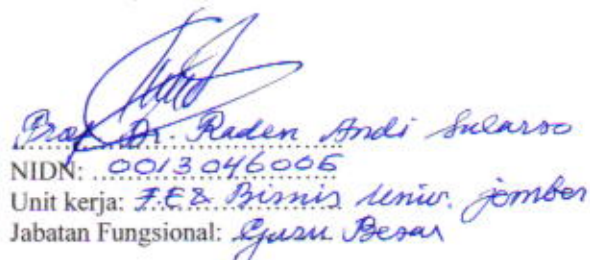 Prof. Dr. Raden Andi Sularso
NIDN: 0013046006
Unit kerja: F.E & Bisnis Univ. Jember
Jabatan Fungsional: Guru Besar